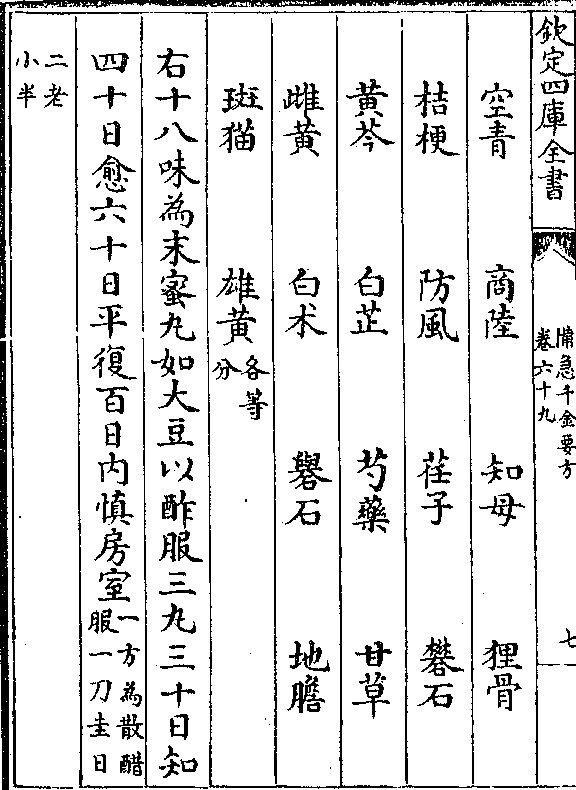 欽定四庫全書
備急千金要方
卷六十九
七
空青 商陸 知母 狸骨
桔梗 防風 荏子 礬石
黄芩 白芷 芍藥 甘草
雌黄 白术 礜石 地膽
斑猫 雄黄各等分
右十八味為末蜜丸如大豆以酢服三丸三十日知
四十日愈六十日平復百日内慎房室一方為散醋服一刀圭日
二老小半